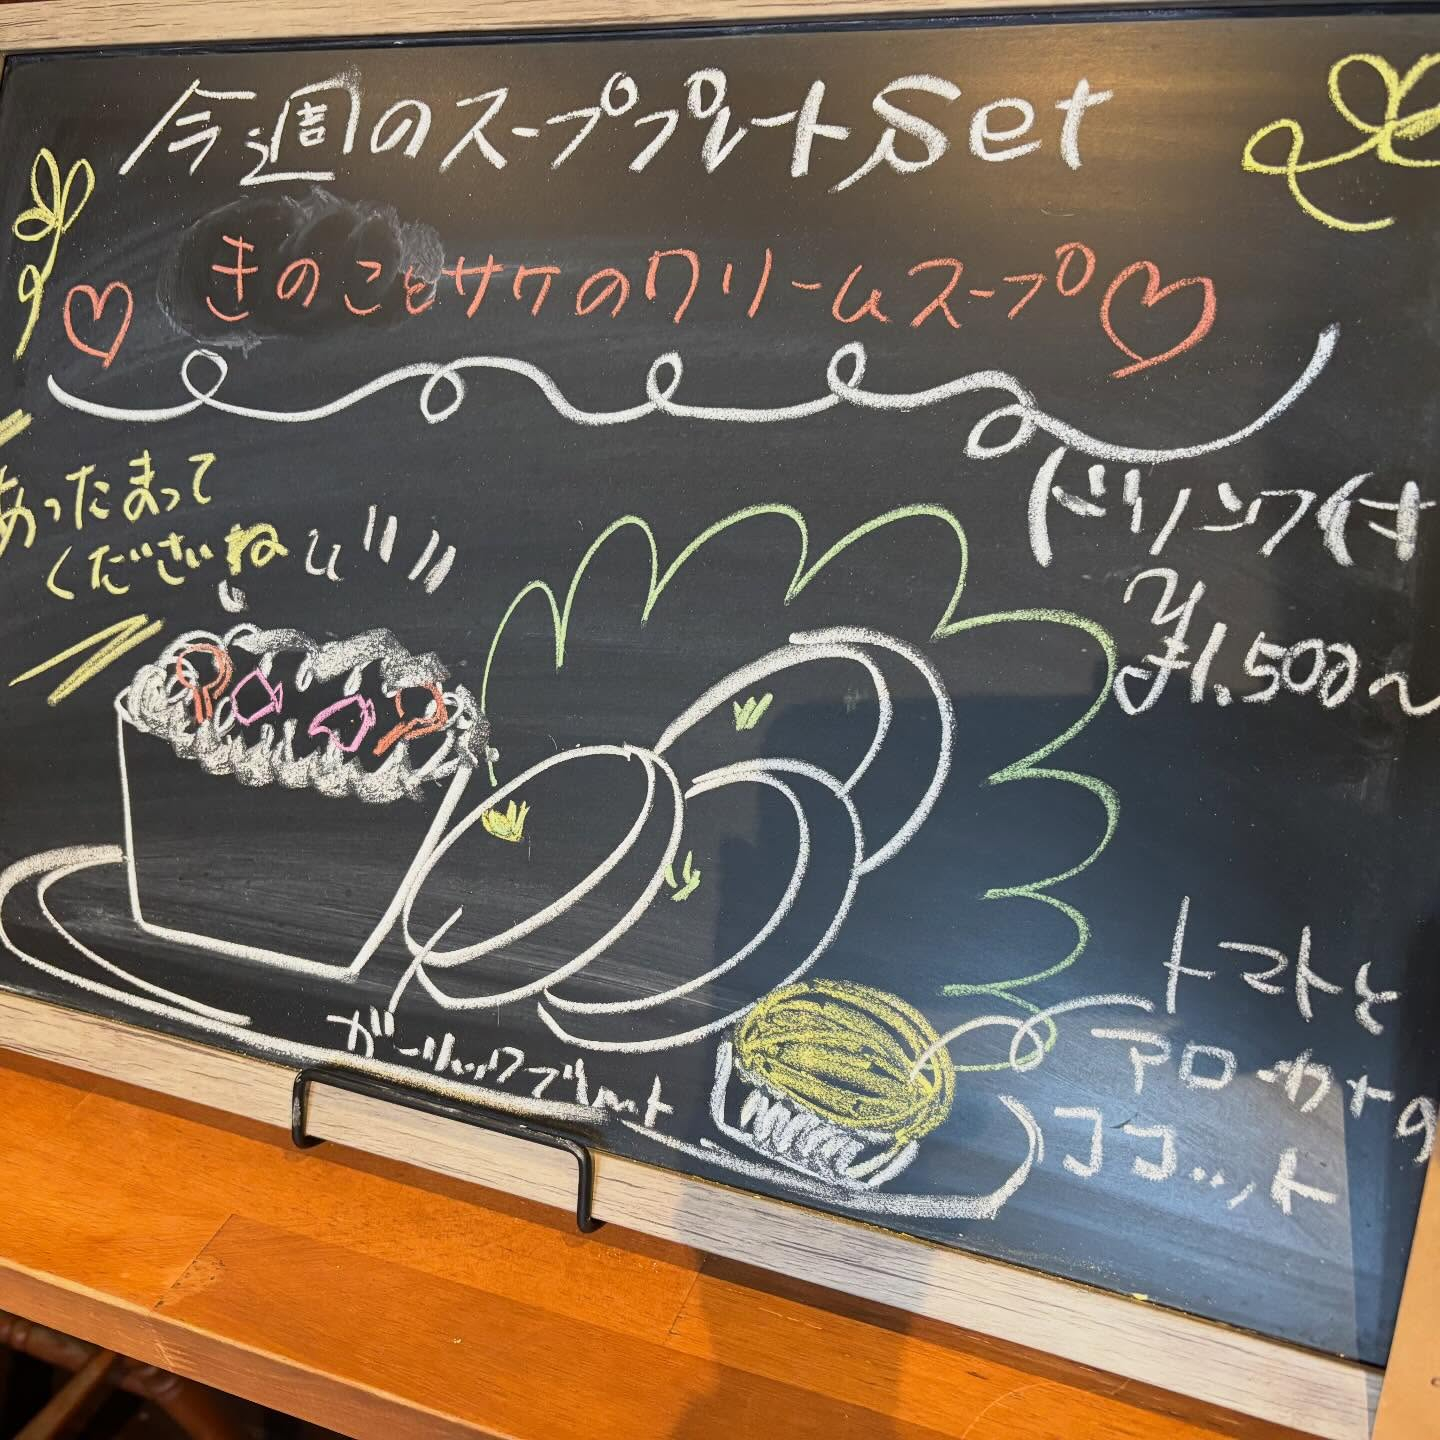 今週のスーププレートSet
きのことサケのクリームスープ
あったまって
くださいね
ドリンク付
¥1.500〜
ガーリックブレット
トマトと
アローカドの
ココット